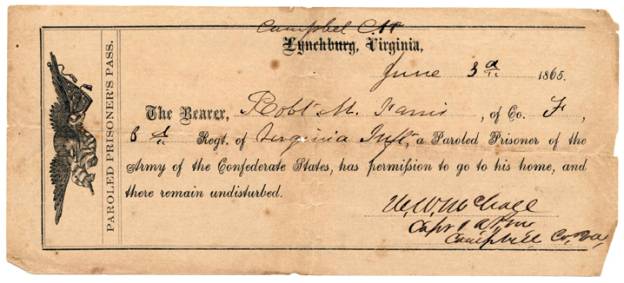 PAROLED PRISONER'S PASS.
Campbel C H
Lynchburg, Virginia,
June 3d 1865.
The Bearer, Robt M. Farris, of Co. F,
Regt. of Virginia Inft, a Paroled Prisoner of the
Army of the Confederate States, has permission to go to his home, and
there remain undisturbed.
Capt
Campbell Co, Va,